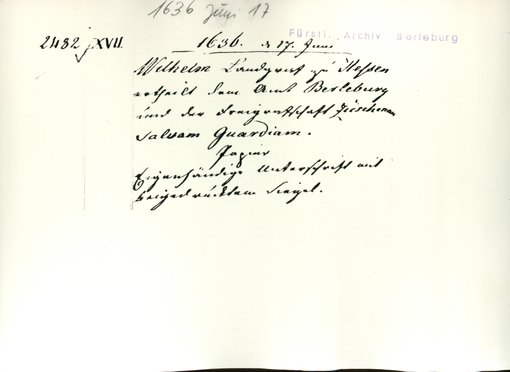 1636 Juni 17
Fürstl. Archiv Berleburg
2482 XVII.
1636. d 17. Juni
Wilhelm Landgraf zu Hessen
ertheilt dem Amt Berleburg
und der Freigrafschaft Züschenau
Salvam Guardiam.
Papier
Eigenhändige Unterschrift mit
beigedrücktem Siegel.